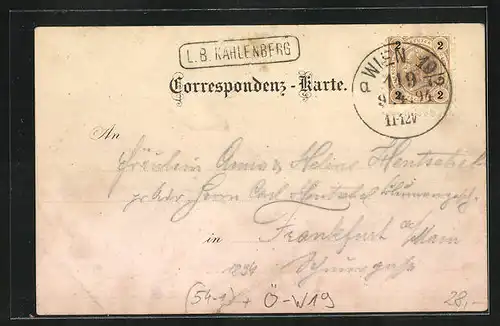 L. B. KAHLENBERG
2 2
WIEN
9 94
11-12V
2 2
Correspondenz-Karte.
An
Fräulein Anna & Helene Hentschel
Herrn Carl Hentschel
in Frankfurt a/Main
(54-1)+ Ö-W19
28,-